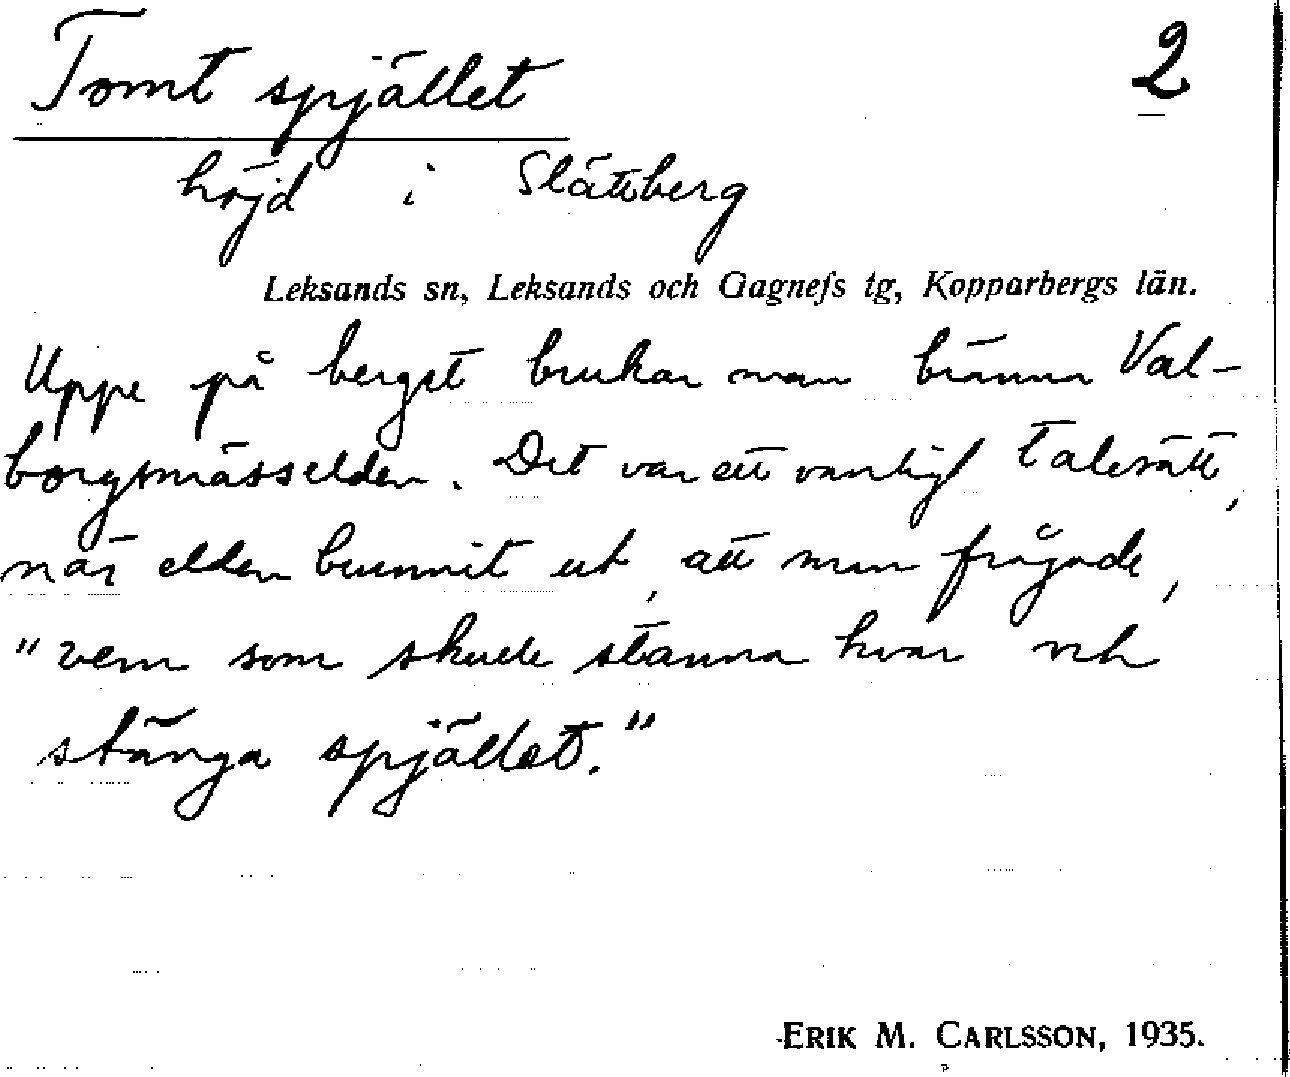 Tomt spjället 2
höjd i Slättberg
Leksands sn, Leksands och Gagnefs tg, Kopparbergs län.
Uppe på berget brukar man bränna Val-
borgsmässelden. Det var ett vanligt talesätt,
när elden brunnit ut, att man frågade,
"vem som skulle stanna kvar och
stänga spjället."
ERIK M. CARLSSON, 1935.